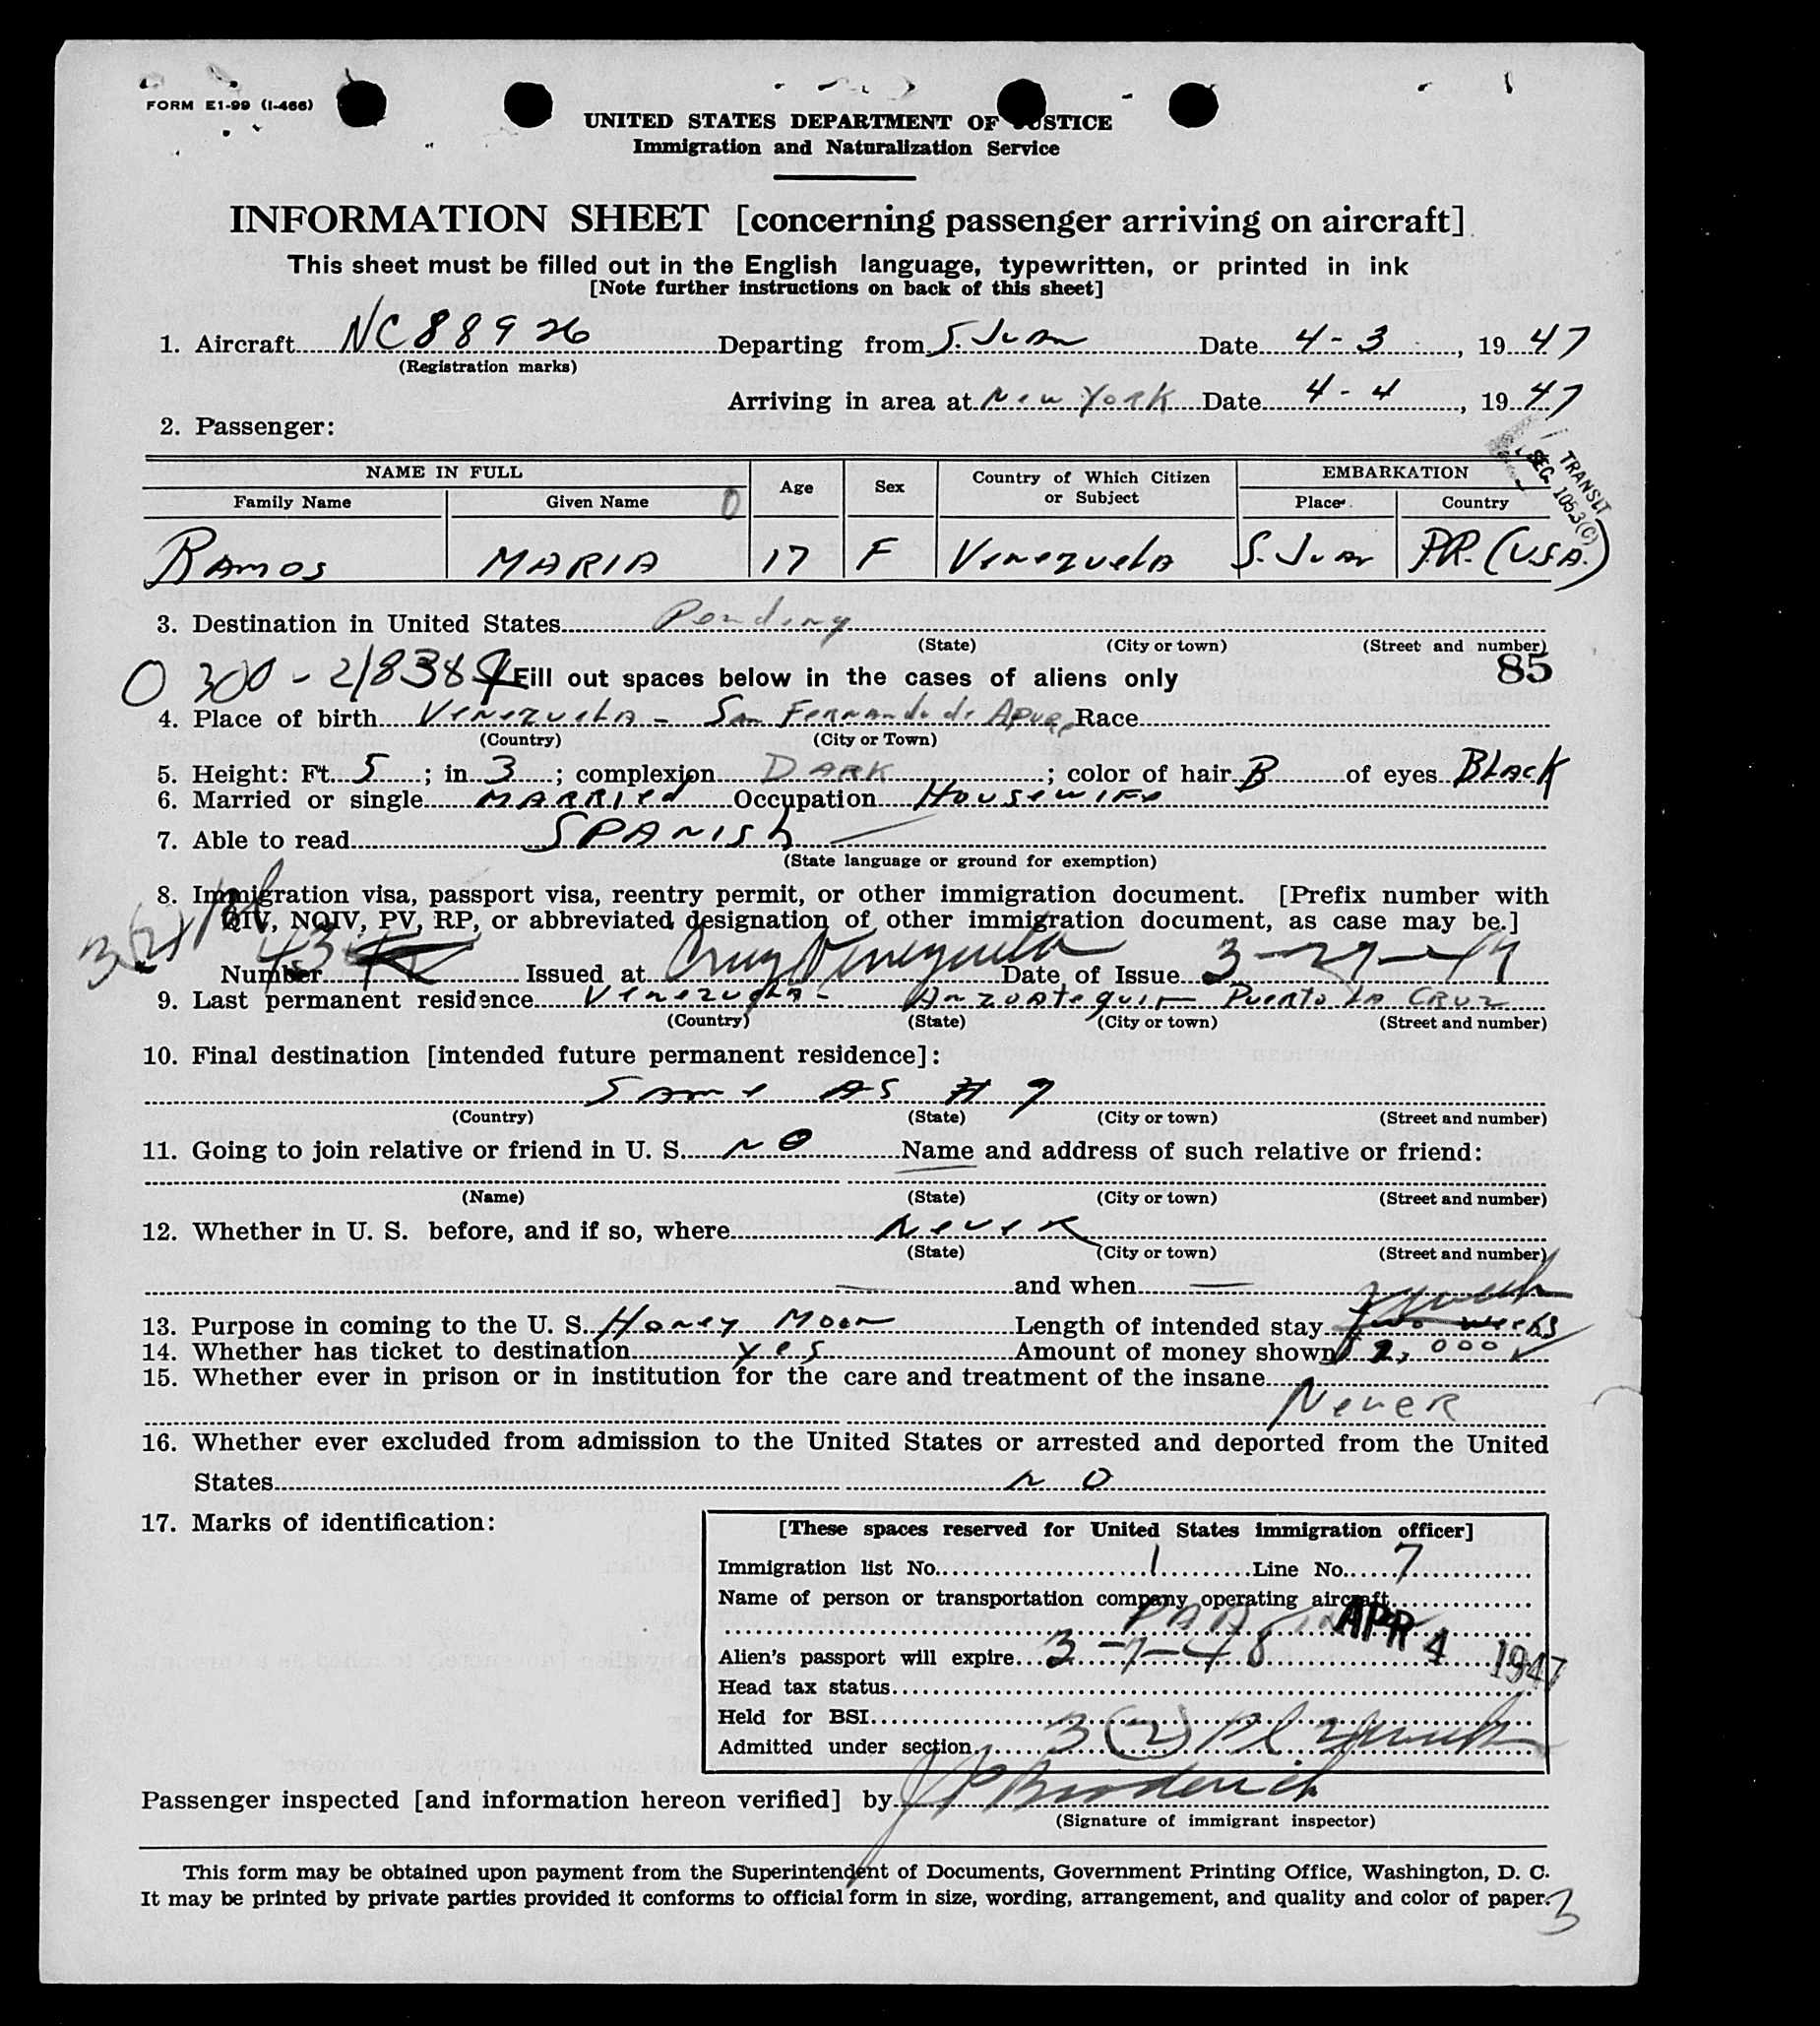 FORM E1-99 (I-466)
UNITED STATES DEPARTMENT OF JUSTICE
Immigration and Naturalization Service
INFORMATION SHEET [concerning passenger arriving on aircraft]
This sheet must be filled out in the English language, typewritten, or printed in ink
[Note further instructions on back of this sheet]
1. Aircraft NC88926 Departing from S. Juan Date 4-3, 1947
(Registration marks)
Arriving in area at New York Date 4-4, 1947
2. Passenger:
TRANSIT
SEC. 105.3(C)
NAME IN FULL Age Sex Country of Which Citizen or Subject EMBARKATION
Family Name Given Name Place Country
Ramos MARIA 17 F Venezuela S. Juan P.R. (USA.)
3. Destination in United States Pending
(State) (City or town) (Street and number)
0300-21838 Fill out spaces below in the cases of aliens only 85
4. Place of birth Venezuela - San Fernando de Apure Race
(Country) (City or Town)
5. Height: Ft. 5; in 3; complexion DARK; color of hair B of eyes Black
6. Married or single MARRIed Occupation Housewife
7. Able to read SPANish
(State language or ground for exemption)
8. Immigration visa, passport visa, reentry permit, or other immigration document. [Prefix number with
QIV, NQIV, PV, RP, or abbreviated designation of other immigration document, as case may be.]
Number Issued at Cruz Venezuela Date of Issue 3-29-47
9. Last permanent residence Venezuela - Anzoategui - Puerto La CRUZ
(Country) (State) (City or town) (Street and number)
10. Final destination [intended future permanent residence]:
Same AS # 9
(Country) (State) (City or town) (Street and number)
11. Going to join relative or friend in U. S. NO Name and address of such relative or friend:
(Name) (State) (City or town) (Street and number)
12. Whether in U. S. before, and if so, where Never
(State) (City or town) (Street and number)
and when
13. Purpose in coming to the U. S. Honey Moon Length of intended stay two weeks
14. Whether has ticket to destination yes Amount of money shown 2,000
15. Whether ever in prison or in institution for the care and treatment of the insane
Never
16. Whether ever excluded from admission to the United States or arrested and deported from the United
States NO
17. Marks of identification:
[These spaces reserved for United States immigration officer]
Immigration list No. 1 Line No. 7
Name of person or transportation company operating aircraft
PAA INC APR 4 1947
Alien's passport will expire 3-7-48
Head tax status
Held for BSI
Admitted under section 3(2) Pl
Passenger inspected [and information hereon verified] by J P Broderick
(Signature of immigrant inspector)
This form may be obtained upon payment from the Superintendent of Documents, Government Printing Office, Washington, D. C.
It may be printed by private parties provided it conforms to official form in size, wording, arrangement, and quality and color of paper.
3